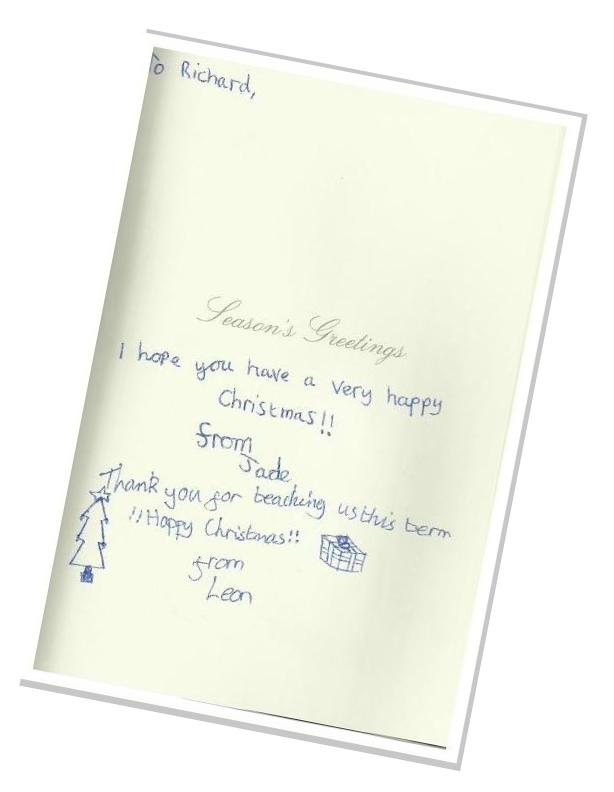 To Richard,
Season's Greetings
I hope you have a very happy
Christmas!!
from
Jade
Thank you for teaching us this term
!!Happy Christmas!!
from
Leon